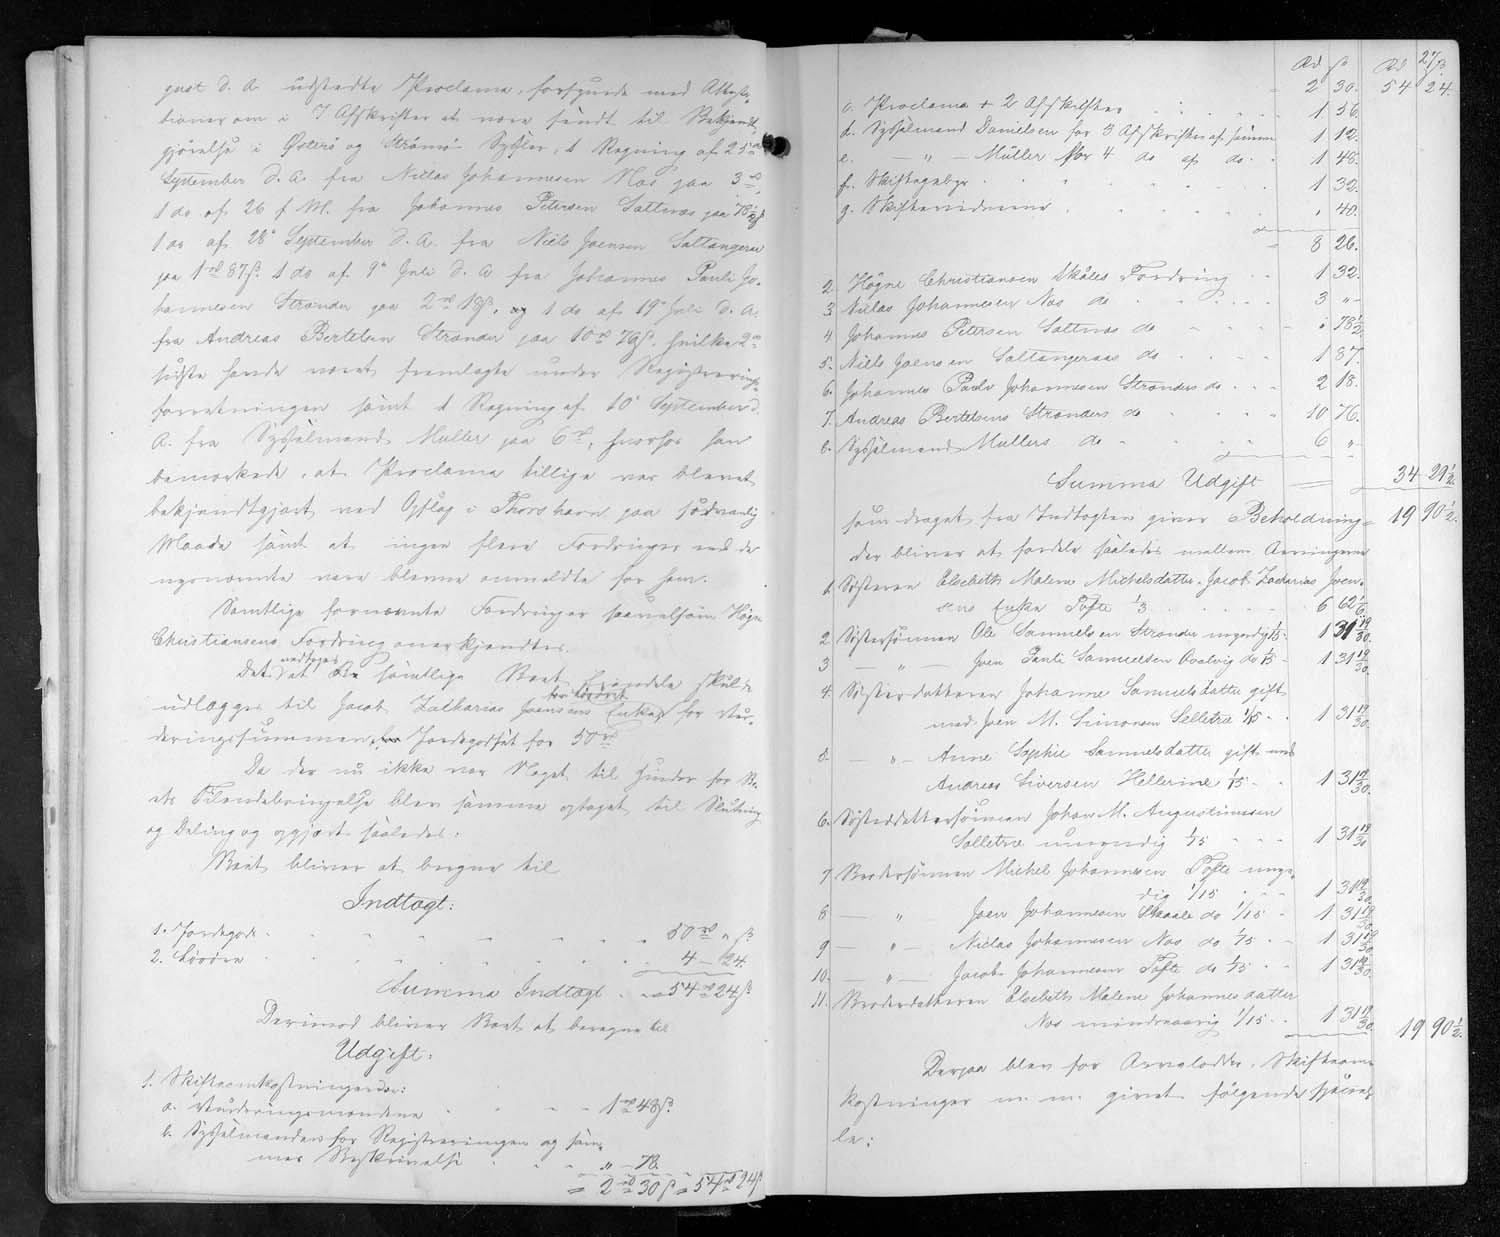 gust d. A. udstedte Proclama, forsynede med Attesta-
tioner om i 7 Afskrifter at være sendt til Bekjendt-
gjørelse i Østerø og Strømø Sysler, 1 Regning af 25de
September d. A. fra Niclas Johannesen Næs paa 3 rd,
1 do af 26 f. M. fra Johannes Petersen Saltnæs paa 78½ ß
1 do af 28de September d. A. fra Niels Joensen Saltangeraa
paa 1 rd 87 ß. 1 do af 9de Juli d. A. fra Johannes Pauli Jo-
hannesen Strænder paa 2 rd 18 ß, og 1 do af 19de Juli d. A.
fra Andreas Bertelsen Strænder paa 10 rd 76 ß. hvilke 2de
sidste havde været fremlagte under Registrerings-
forretningen samt 1 Regning af 10de September d.
A. fra Sysselmand Müller paa 6 rd, hvorhos han
bemærkede, at Proclama tillige var blevet
bekjendtgjort ved Opslag i Thorshavn paa sædvanlig
Maade samt at ingen flere Fordringer end de
nysnævnte vare blevne anmeldte for ham.
Samtlige fornævnte Fordringer saavelsom Høgne
Christiansens Fordring anerkjendtes.
Det vedtoges at samtlige Boets Eiendele skulde
udlægges til Jacob Zacharias Joensens Enke for Vur-
deringssummen, Jordegodset for 50 rd
Da der nu ikke var Noget til Hinder for Bo-
ets Tilendebringelse blev samme optaget til Slutning
og Deling og opgjort saaledes:
Boet bliver at beregne til
Indtægt:
1. Jordegods . . . 50 rd " ß
2. Løsøre . . . 4 - 24.
Summa Indtægt . . 54 rd 24 ß
Derimod bliver Boet at beregne til
Udgift:
1. Skifteomkostningerne:
a. Vurderingsmændene . . . 1 rd 48 ß
b. Sysselmanden for Registreringen og sam-
mes Beskrivelse . . . " - 78.
= 2 rd 30 ß = 54 rd 24 ß
Rd ß Rd ß
2 30. 54 24.
c. Proclama + 2 Afskrifter . . . 1 56.
d. Sysselmand Danielsen for 3 Afskrifter af samme 1 12.
e. — " — Müller for 4 do af do . . 1 48.
f. Skiftegebyr . . . 1 32.
g. Skiftevidnerne . . . " 40.
8 26.
2. Høgne Christiansen Skåles Fordring . . 1 32.
3 Niclas Johannesen Næs do . . . 3 " -
4 Johannes Petersen Saltnæs do . . . " 78½
5. Niels Joensen Saltangeraas do . . . 1 87.
6. Johannes Pauli Johannesen Strænders do . . . 2 18.
7. Andreas Bertelsens Strænders do . . . 10 76.
8. Sysselmand Müllers do . . . 6 "
Summa Udgift = 34 29½
som draget fra Indtægten giver Beholdning = 19 90½.
der bliver at fordele saaledes mellem Arvingerne
1. Søsteren Elsebeth Malene Michelsdatter, Jacob Zacharias Joen-
sens Enke Tofte 1/3 . . . 6 62 1/6
2. Søstersønnen Ole Samuelsen Strænder umyndig 1/15 . 1 31 19/30.
3 — " — Joen Pauli Samuelsen Qvalvig do 1/15 . 1 31 19/30.
4. Søsterdatteren Johanne Samuelsdatter gift
med Joen M. Simonsen Selletræ 1/15 . . 1 31 19/30.
5. — " — Anne Sophie Samuelsdatter gift med
Andreas Siversen Hellerne 1/15 . . 1 31 19/30.
6. Søsterdattersønnen Johan M. Augustinussen
Selletræ umyndig 1/15 . . . 1 31 19/30
7 Brodersønnen Michel Johannesen Tofte umyn-
dig 1/15 . . . 1 31 19/30.
8 — " — Joen Johannesen Skaale do 1/15 . 1 31 19/30
9 — " — Niclas Johannesen Næs do 1/15 . . 1 31 19/30
10. — " — Jacob Johannesen Tofte do 1/15 . . 1 31 19/30.
11. Broderdatteren Elsebeth Malene Johannesdatter
Næs mindreaarig 1/15 . . 1 31 19/30 19 90½.
Derpaa blev for Arvelodder, Skifteom-
kostninger m. m. givet følgende